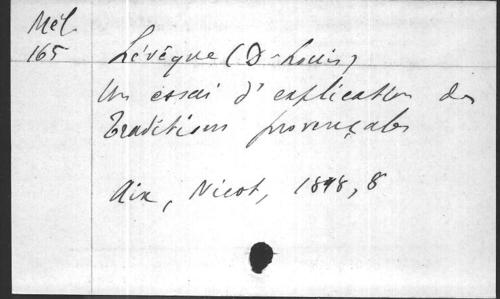 Mél.
165
Lévêque (D-Louis)
Un essai d'explication des
traditions provençales
Aix, Nicot, 1898, 8